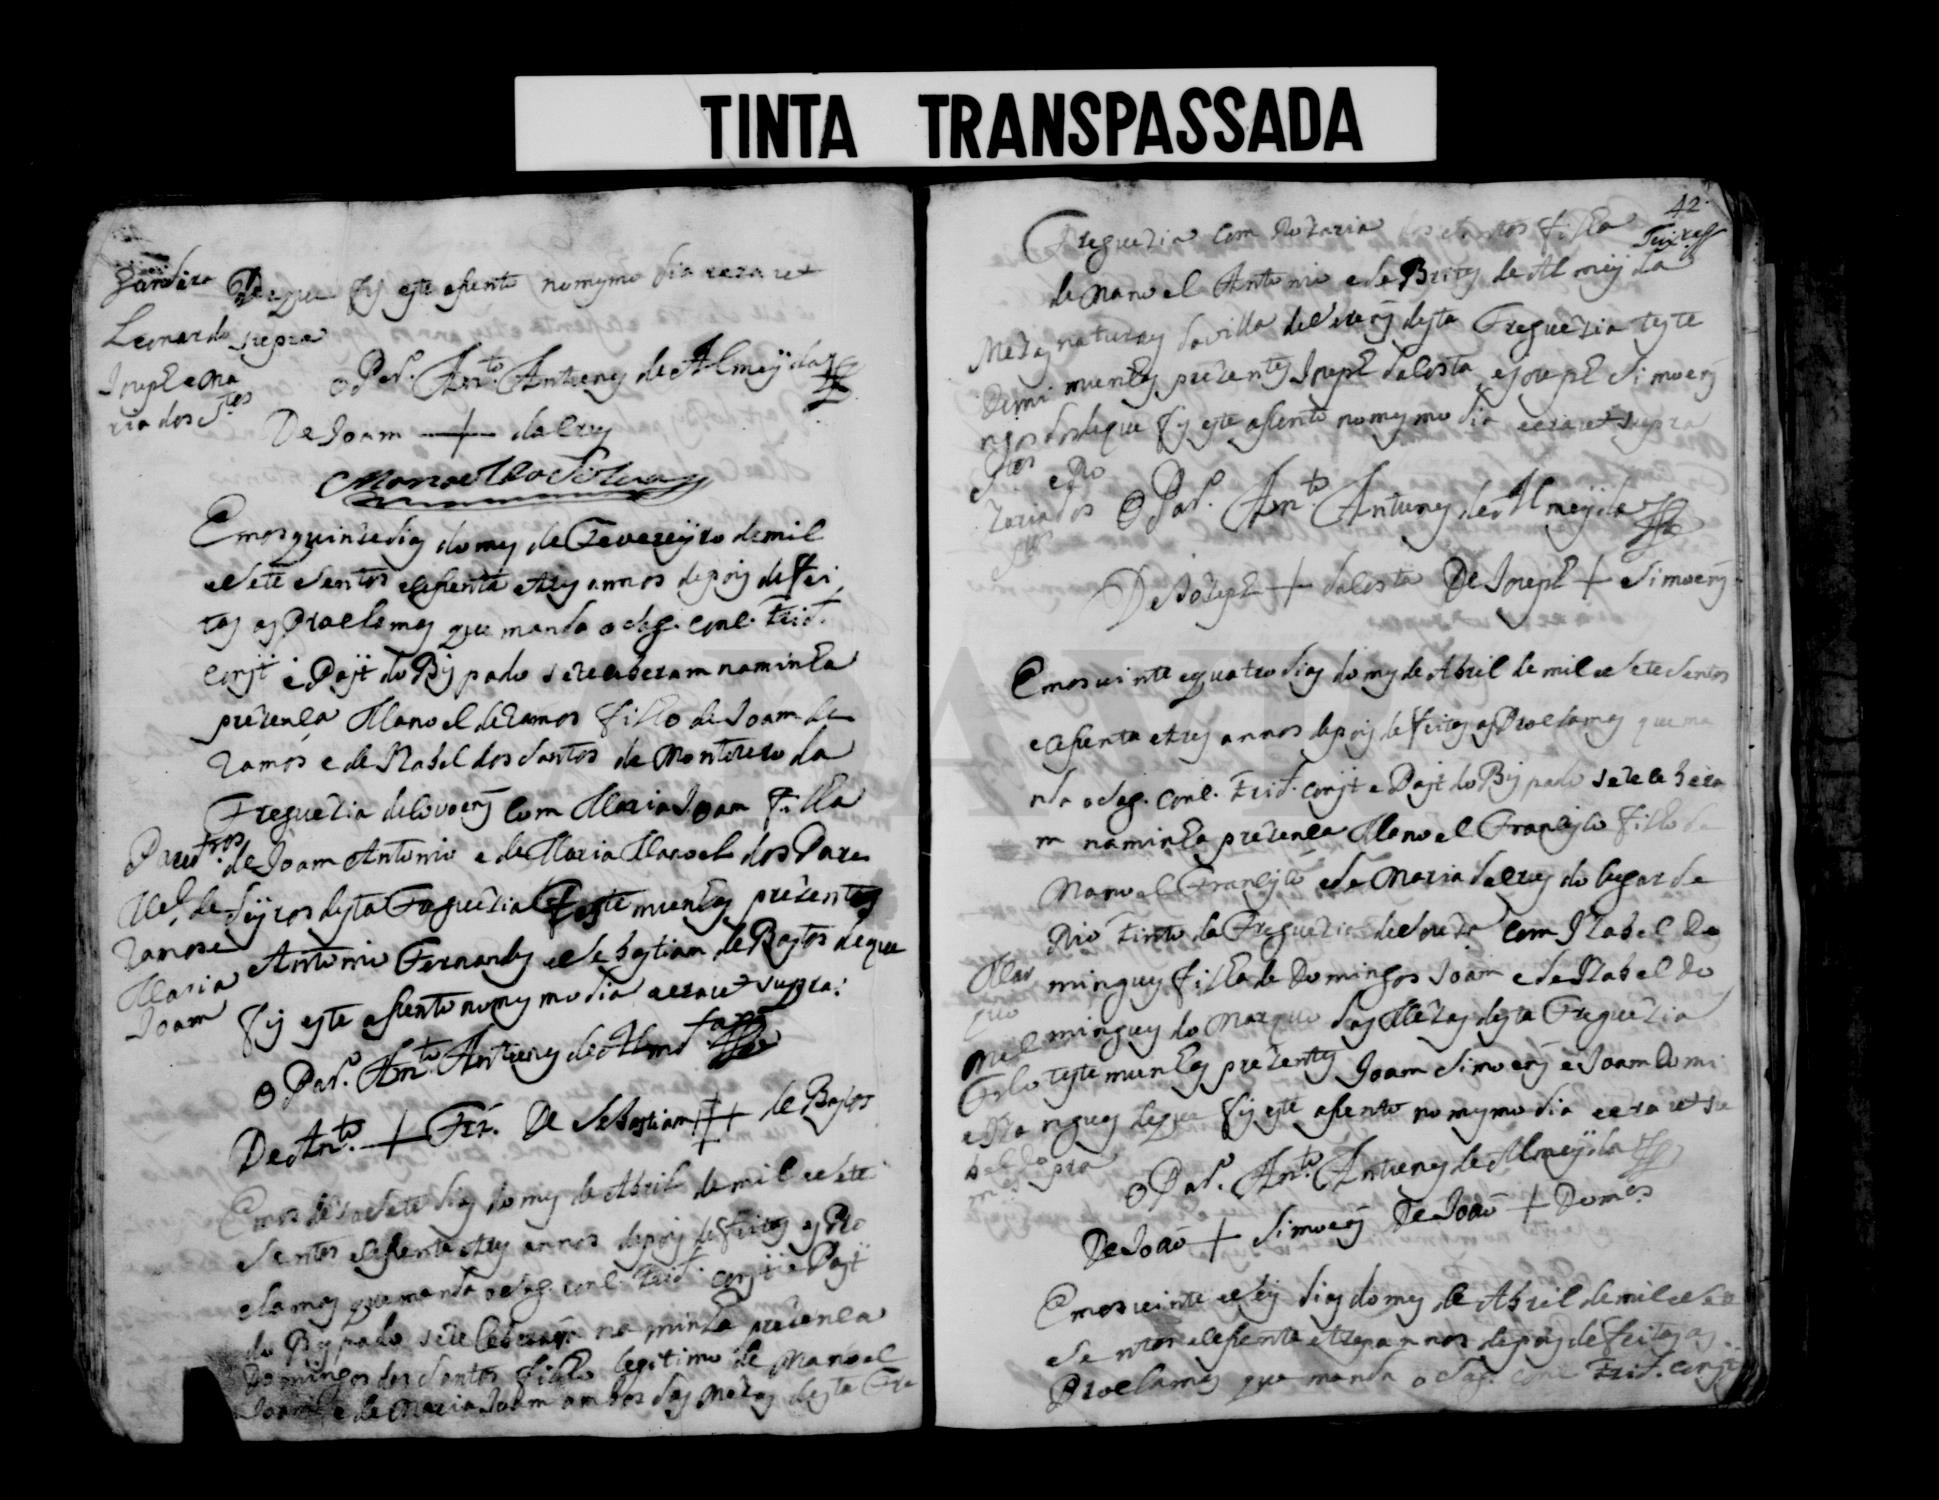 TINTA TRANSPASSADA
Gandara
Leonardo
Joseph e Ma
ria dos Stos
De que fis este asento no mesmo dia e era ut
supra
o Par. Anto Antunes de Almeyda
De Joam + da Crus
Manoel da Silva
Emos quinze dias do mes de Fevereyro de mil
e sete sentos e sesenta e tres annos depois de fei
tas as Proclamas que manda o Sag. Conc. Trid.
Const e Past do Bispado se receberam na minha
prezença Manoel de Ramos filho de Joam de
Ramos e de Izabel dos Santos de Montouro da
Freguezia de Covoens com Maria Joam filha
de Joam Antonio e de Maria Manoel dos Pare
deyros desta Freguezia testemunhas prezentes
Antonio Fernandes e Sebastiam de Bastos de que
fis este asento no mesmo dia e era ut supra:
Mel de
Ramos e
Maria
Joam
o Par. Anto Antunes de Almda
De Anto + Frz. De Sebastiam + de Bastos
Emos dezasete dias do mes de Abril de mil e sete
sentos e sesenta e tres annos depois de feitas as Pro
clamas que manda o Sag. Conc. Trid. Const e Past
do Bispado se receberam na minha prezença
Domingos dos Santos filho legitimo de Manoel
Joam e de Maria Joam ambos das Mezas desta Fre
42
Freguezia com Rozaria dos Santos filha
de Manoel Antonio e de Brites de Almeyda
Mezas naturais da villa de desta Freguezia teste
munhas prezentes Joseph da Costa e Joseph Simoens
de que fis este asento no mesmo dia e era ut supra
Domi
ngos dos
Stos e Ro
zaria dos
Stos
o Par. Anto Antunes de Almeyda
De Joseph + da Costa De Joseph + Simoens
Emos vinte e quatro dias do mes de Abril de mil e sete sentos
e sesenta e tres annos depois de feitas as Proclamas que ma
nda o Sag. Conc. Trid. Const e Past do Bispado se recebera
m na minha prezença Manoel Francisco filho de
Manoel Francisco e de Maria da Crus do lugar de
Rio Tinto da Freguezia de Soza com Izabel Do
mingues filha de Domingos Joam e de Izabel Do
mingues do Marquo das Mezas desta Freguezia
testemunhas prezentes Joam Simoens e Joam Domi
ngues de que fis este asento no mesmo dia e era ut su
pra
Mel
e Iza
bel Do
o Par. Anto Antunes de Almeyda
De João + Simoens De João + Domes
Emos vinte e seis dias do mes de Abril de mil e sete
sentos e sesenta e tres annos depois de feitas as
Proclamas que manda o Sag. Conc. Trid. Const